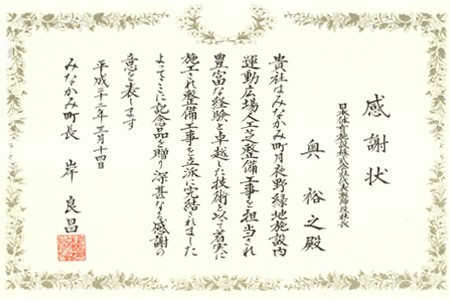 感謝状
日本体育施設株式会社代表取締役社長
奥 裕之殿
貴社はみなかみ町月夜野緑地施設内
運動広場人工芝整備工事を担当され
豊富な経験と卓越した技術を以て着実に
施工され整備工事を立派に完結されました
よってここに記念品を贈り深甚なる感謝の
意を表します
平成二十二年三月十四日
みなかみ町長 岸 良昌